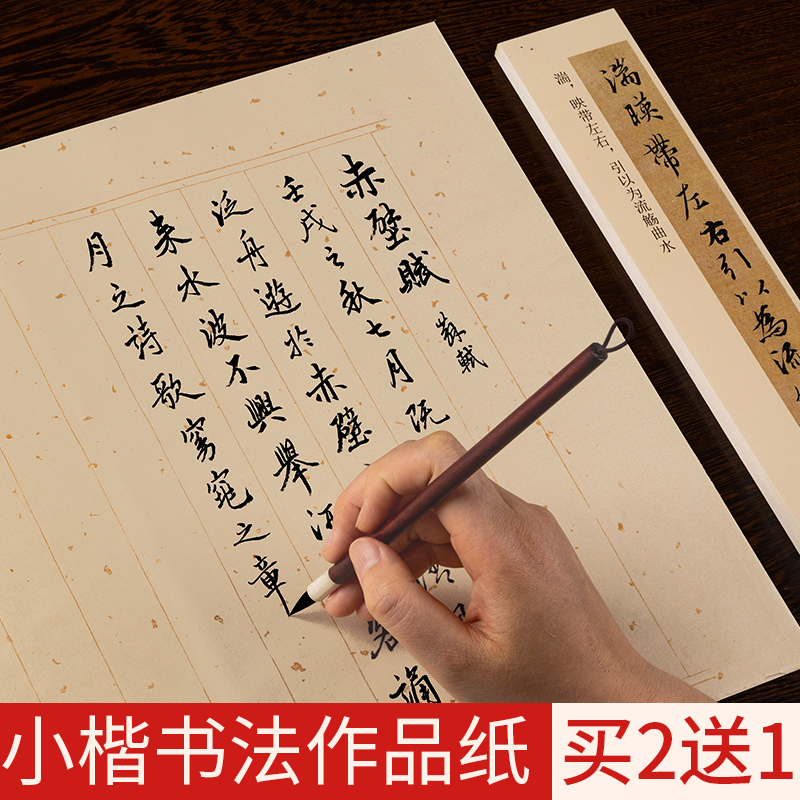 赤壁賦
蘇軾
壬戌之秋七月既
泛舟遊於赤壁
來水波不興舉
客誦
月之詩歌窈窕之章
湍暎帶左右引以為流
湍，映带左右，引以为流觞曲水
小楷书法作品纸
买2送1